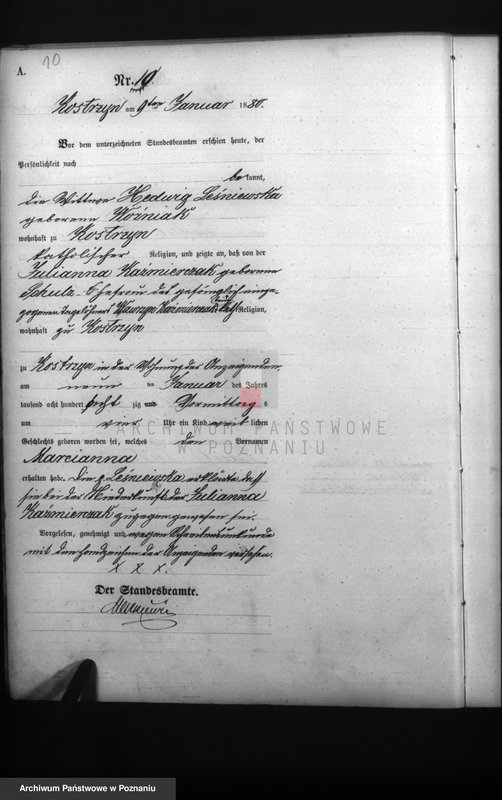 10
A.
Nr. 10.
Kostrzyn am 9ten Januar 1880.
Vor dem unterzeichneten Standesbeamten erschien heute, der
Persönlichkeit nach
bekannt,
die Wittwe Hedwig Leśniewska
geborene Woźniak
wohnhaft zu Kostrzyn
katholischer Religion, und zeigte an, daß von der
Julianna Kaźmierczak geborenen
Schulz Ehefrau des gefänglich einge-
zogenen Tagelöhners Wawrzyn Kaźmierczak kath. Religion,
wohnhaft zu Kostrzyn
zu Kostrzyn in der Wohnung der Anzeigenden
am neun ten Januar des Jahres
tausend acht hundert acht zig und Vormittag s
um vier Uhr ein Kind weib lichen
Geschlechts geboren worden sei, welches den Vornamen
Marcianna
erhalten habe. Die p. Leśniewska erklärte daß
sie bei der Niederkunft der Julianna
Kaźmierczak zugegen gewesen sei.
Vorgelesen, genehmigt und wegen Schreibensunkunde
mit den Handzeichen der Anzeigenden versehen.
X X X.
Der Standesbeamte.
ARCHIWUM PAŃSTWOWE
W POZNANIU
Archiwum Państwowe w Poznaniu